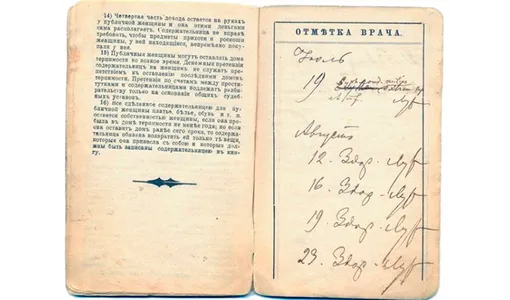 14) Четвертая часть дохода остается на рукахъ
у публичной женщины и она этими деньгами
сама располагаетъ. Содержательница не вправѣ
требовать, чтобы предметы прихоти и роскоши
женщины, у ней находящіеся, непремѣнно поку-
пали у нея.
15) Публичныя женщины могутъ оставлять дома
терпимости во всякое время. Денежныя претензіи
содержательницъ на женщинъ не служатъ пре-
пятствіемъ къ оставленію послѣдними домовъ
терпимости. Претензіи по счетамъ между прости-
тутками и содержательницами подлежатъ разби-
рательству только на основаніи общихъ судеб-
ныхъ уставовъ.
16) Все сдѣланное содержательницею для пу-
бличной женщины платье, бѣлье, обувь и т. п.
остается собственностью женщины, если она про-
была въ домѣ терпимости не менѣе года; но если
она оставитъ домъ ранѣе сего срока, то содержа-
тельница обязана возвратить ей только тѣ вещи,
которыя она привезла съ собою и которыя дол-
жны быть записаны содержательницею въ кни-
гу.
ОТМѢТКА ВРАЧА.
Іюль
19
Августъ
12. Здор.
16. Здор.
19 Здор.
23. Здор.